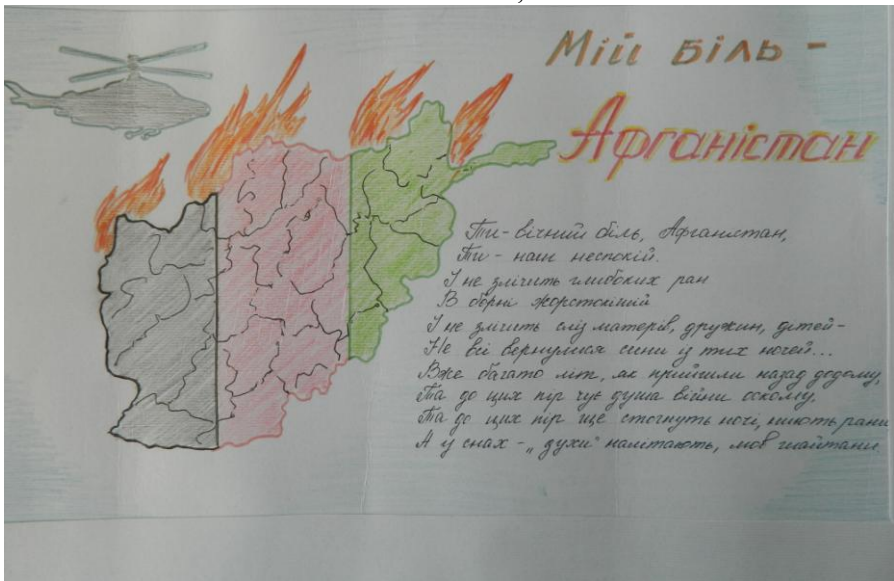 Мій біль -
Афганістан
Ти - вічний біль, Афганістан,
Ти - наш неспокій.
І не злічить глибоких ран
В борні жорстокіший
І не злічить сліз матерів, дружин, дітей -
Не всі вернулися сини із тих ночей...
Вже багато літ, як прийшли назад додому,
Та до цих пір чує душа війни оскому,
Та до цих пір ще стогнуть ночі, ниють рани
А у снах - „духи" налітають, мов шайтани